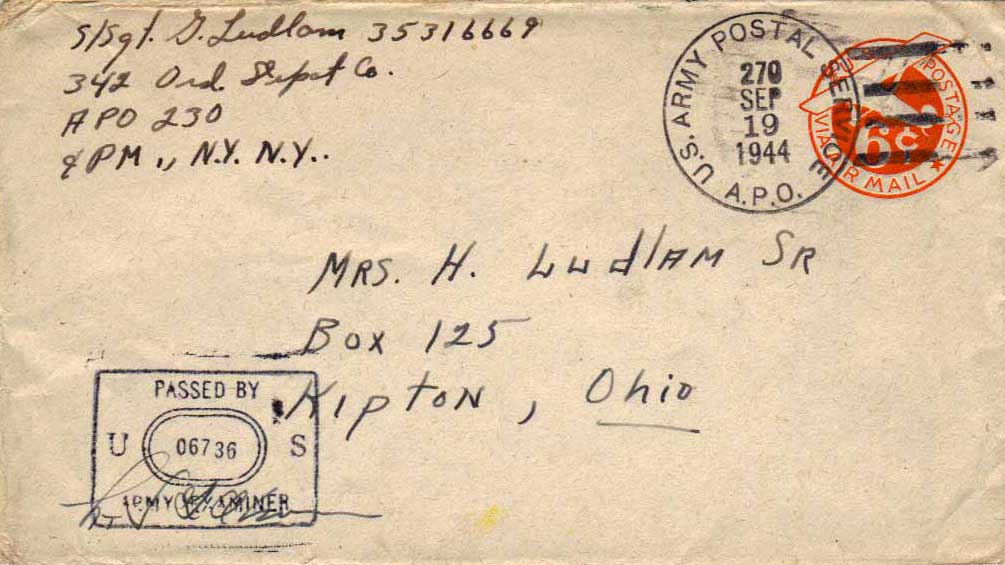 S/Sgt. G. Ludlam 35316669
342 Ord. Depot Co.
APO 230
% PM., N.Y. N.Y..
U.S. ARMY POSTAL SERVICE
270
SEP
19
1944
A.P.O.
U.S. POSTAGE
6¢
VIA AIR MAIL
MRS. H. Ludlam SR
Box 125
Kipton, Ohio
PASSED BY
U 06736 S
ARMY EXAMINER